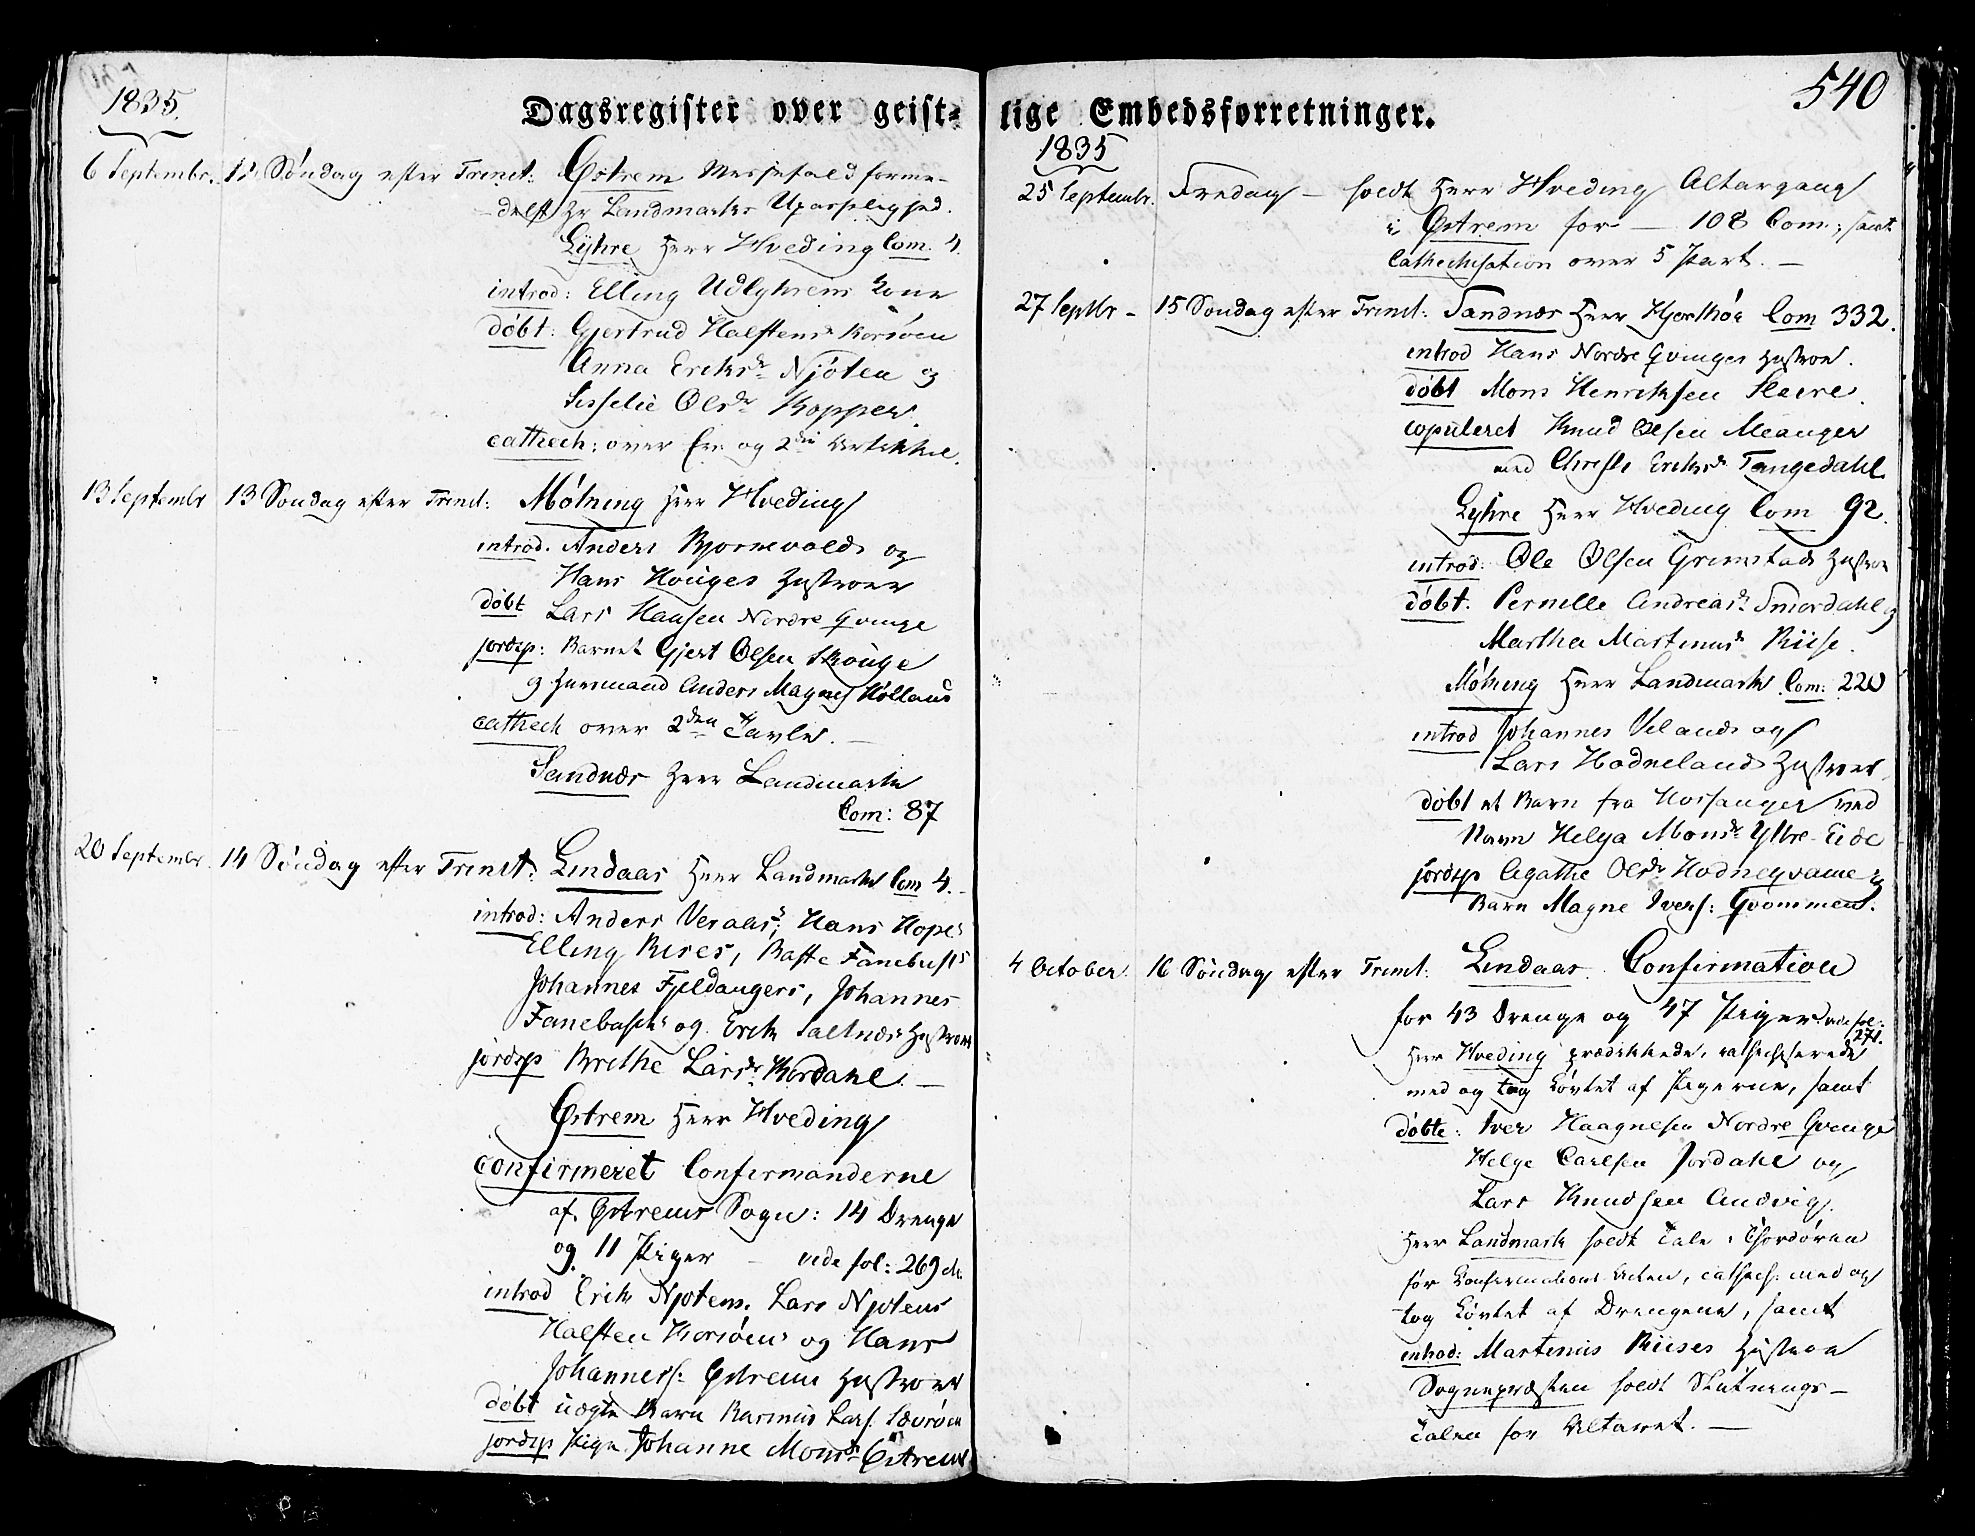 1835.
Dagsregister over geist-
6 Septembr. 12 Søndag efter Trinit: Østrem Messefald forme-
delst Hr Landmarks Upasselighed.
Lyhre Herr Hveding Com. 4.
introd: Elling Udlyhrens Kone
døbt: Gjertrud Halstensdr Korsøen
Anna Eriksdr Njøten og
Sisselie Olsdr Kopper.
cathech: over og 2den Artikkel.
13 Septembr 13 Søndag efter Trinit: Mølning Herr Hveding
introd. Anders Bjornevolds og
Hans Houges Hustroer
døbt Lars Hansen Nordre Qvinge
jordsp: Barnet Gjert Olsen Skouge
og Huusmand Anders Magnes
cathech over 2den Tavle. —
Sandnæs Herr Landmark
Com: 87
20 Septembr. 14 Søndag efter Trinit: Lindaas Herr Landmark Com 4.
introd: Anders Veraas's, Hans Hopes
Elling Rires, Baste Fanebusts
Johannes Fjeldangers, Johannes
Fanebusts og Erik Saltnæs Hustroer
jordsp Brithe Larsdr Kordahl. —
Østrem Herr Hveding
confirmeret Confirmanderne
af Østrems Sogn: 14 Drenge
og 11 Piger — vide fol: 269
introd Erik Njotens, Lars Njotens
Halsten Korsøens og Hans
Johanness: Østrems Hustroer
døbt uægte Barn Rasmus Lars. Sævrøen
jordsp Pige Johanne Monsdr Østrem
540
lige Embedsforretninger.
1835
25 Septembr. Fredag — holdt Herr Hveding Altargang
i Østrem for — 108 Com; samt
Cathechisation over 5 Part. —
27 Septbr - 15 Søndag efter Trinit: Sandnæs Herr Hjorthøi Com 332.
introd Hans Nordre Qvinges Hustroe.
døbt Mons Henriksen Skeire.
copuleret Knud Olsen Meanger
med Christi Eriksdr Tangedahl
Lyhre Herr Hveding Com 92.
introd: Ole Olsen Grimstads Hustroe
døbt. Pernille Andreasdr Smørdahl og
Martha Martinusdr Riise.
Mølning Herr Landmark Com: 220
introd Johannes Velands og
Lars Hodnelands Hustroer
døbt et Barn fra Hosanger ved
Navn Helga Monsdr Yttre-Eide
jordsp Agathe Olsdr Hodneqvame og
Barn Magne Ivers: Qvammen.
4 October. 16 Søndag efter Trinit: Lindaas. Confirmation
for 43 Drenge og 47 Piger. vide fol:
271.
Herr Hveding prædikkede, cathechiserede
med og tog Løvtet af Pigerne, samt
døbte: Iver Haagnesen Nordre Qvinge
Helge Carlsen Jordahl og
Lars Knudsen Andvig.
Herr Landmark holdt Tale i Chordøren
før Confirmations Acten, cathech: med og
tog Løvtet af Drengene, samt
introd: Martinus Riises Hustroe
Sognepræsten holdt Slutnings-
Talen for Alteret. —